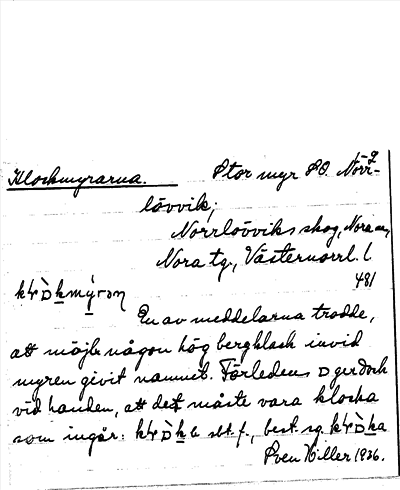 Klockmyrarna. Stor myr SO. Norr-
lövvik,
Norrlövviks skog, Nora sn,
Nora tg., Västernorrl. l.
481
En av meddelarna trodde,
att möjl. någon hög bergklack invid
myren givit namnet. Förledens ɒ ger dock
vid handen, att det måste vara klocka
som ingår: sbt. f., best. sg.
Sven Hiller 1936.